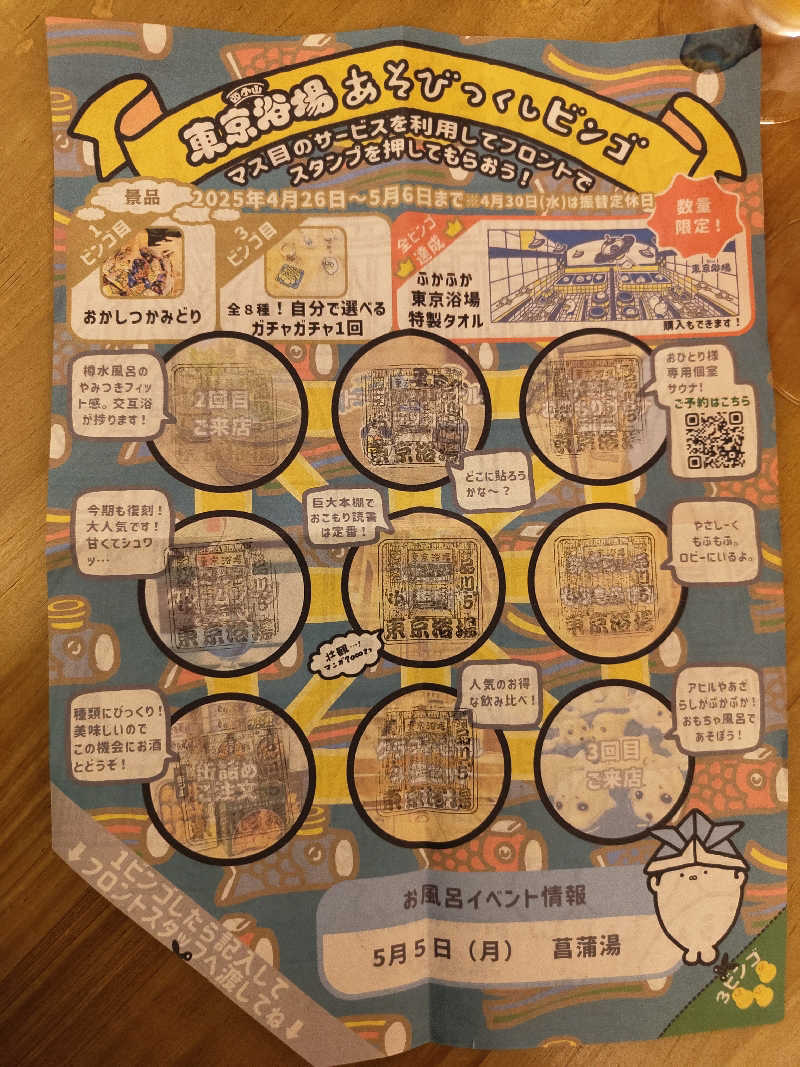 西小山
東京浴場 あそびつくしビンゴ
マス目のサービスを利用してフロントで
スタンプを押してもらおう!
景品
2025年4月26日~5月6日まで ※4月30日(水)は振替定休日
数量
限定!
1
ビンゴ目
おかしつかみどり
3
ビンゴ目
全8種!自分で選べる
ガチャガチャ1回
全ビンゴ
達成
ふかふか
東京浴場
特製タオル
東京浴場
購入もできます!
樽水風呂の
やみつきフィッ
ト感。交互浴
が捗ります!
2回目
ご来店
東京浴場
どこに貼ろう
かな~?
おひとり様
専用個室
サウナ!
ご予約はこちら
東京浴場
今期も復刻!
大人気です!
甘くてシュワ
ッ…
東京浴場
東京浴場
巨大本棚で
おこもり読書
は定番!
東京浴場
東京浴場
壮観…!
マンガ7000冊
やさしーく
もふもふ。
ロビーにいるよ。
東京浴場
東京浴場
種類にびっくり!
美味しいので
この機会にお酒
とどうぞ!
缶詰め
ご注文
人気のお得
な飲み比べ!
東京浴場
アヒルやあざ
らしがぷかぷか!
おもちゃ風呂で
あそぼう!
3回目
ご来店
↓1ビンゴしたら記入して
フロントスタッフへ渡してね↓
お風呂イベント情報
5月5日(月) 菖蒲湯
3ビンゴ